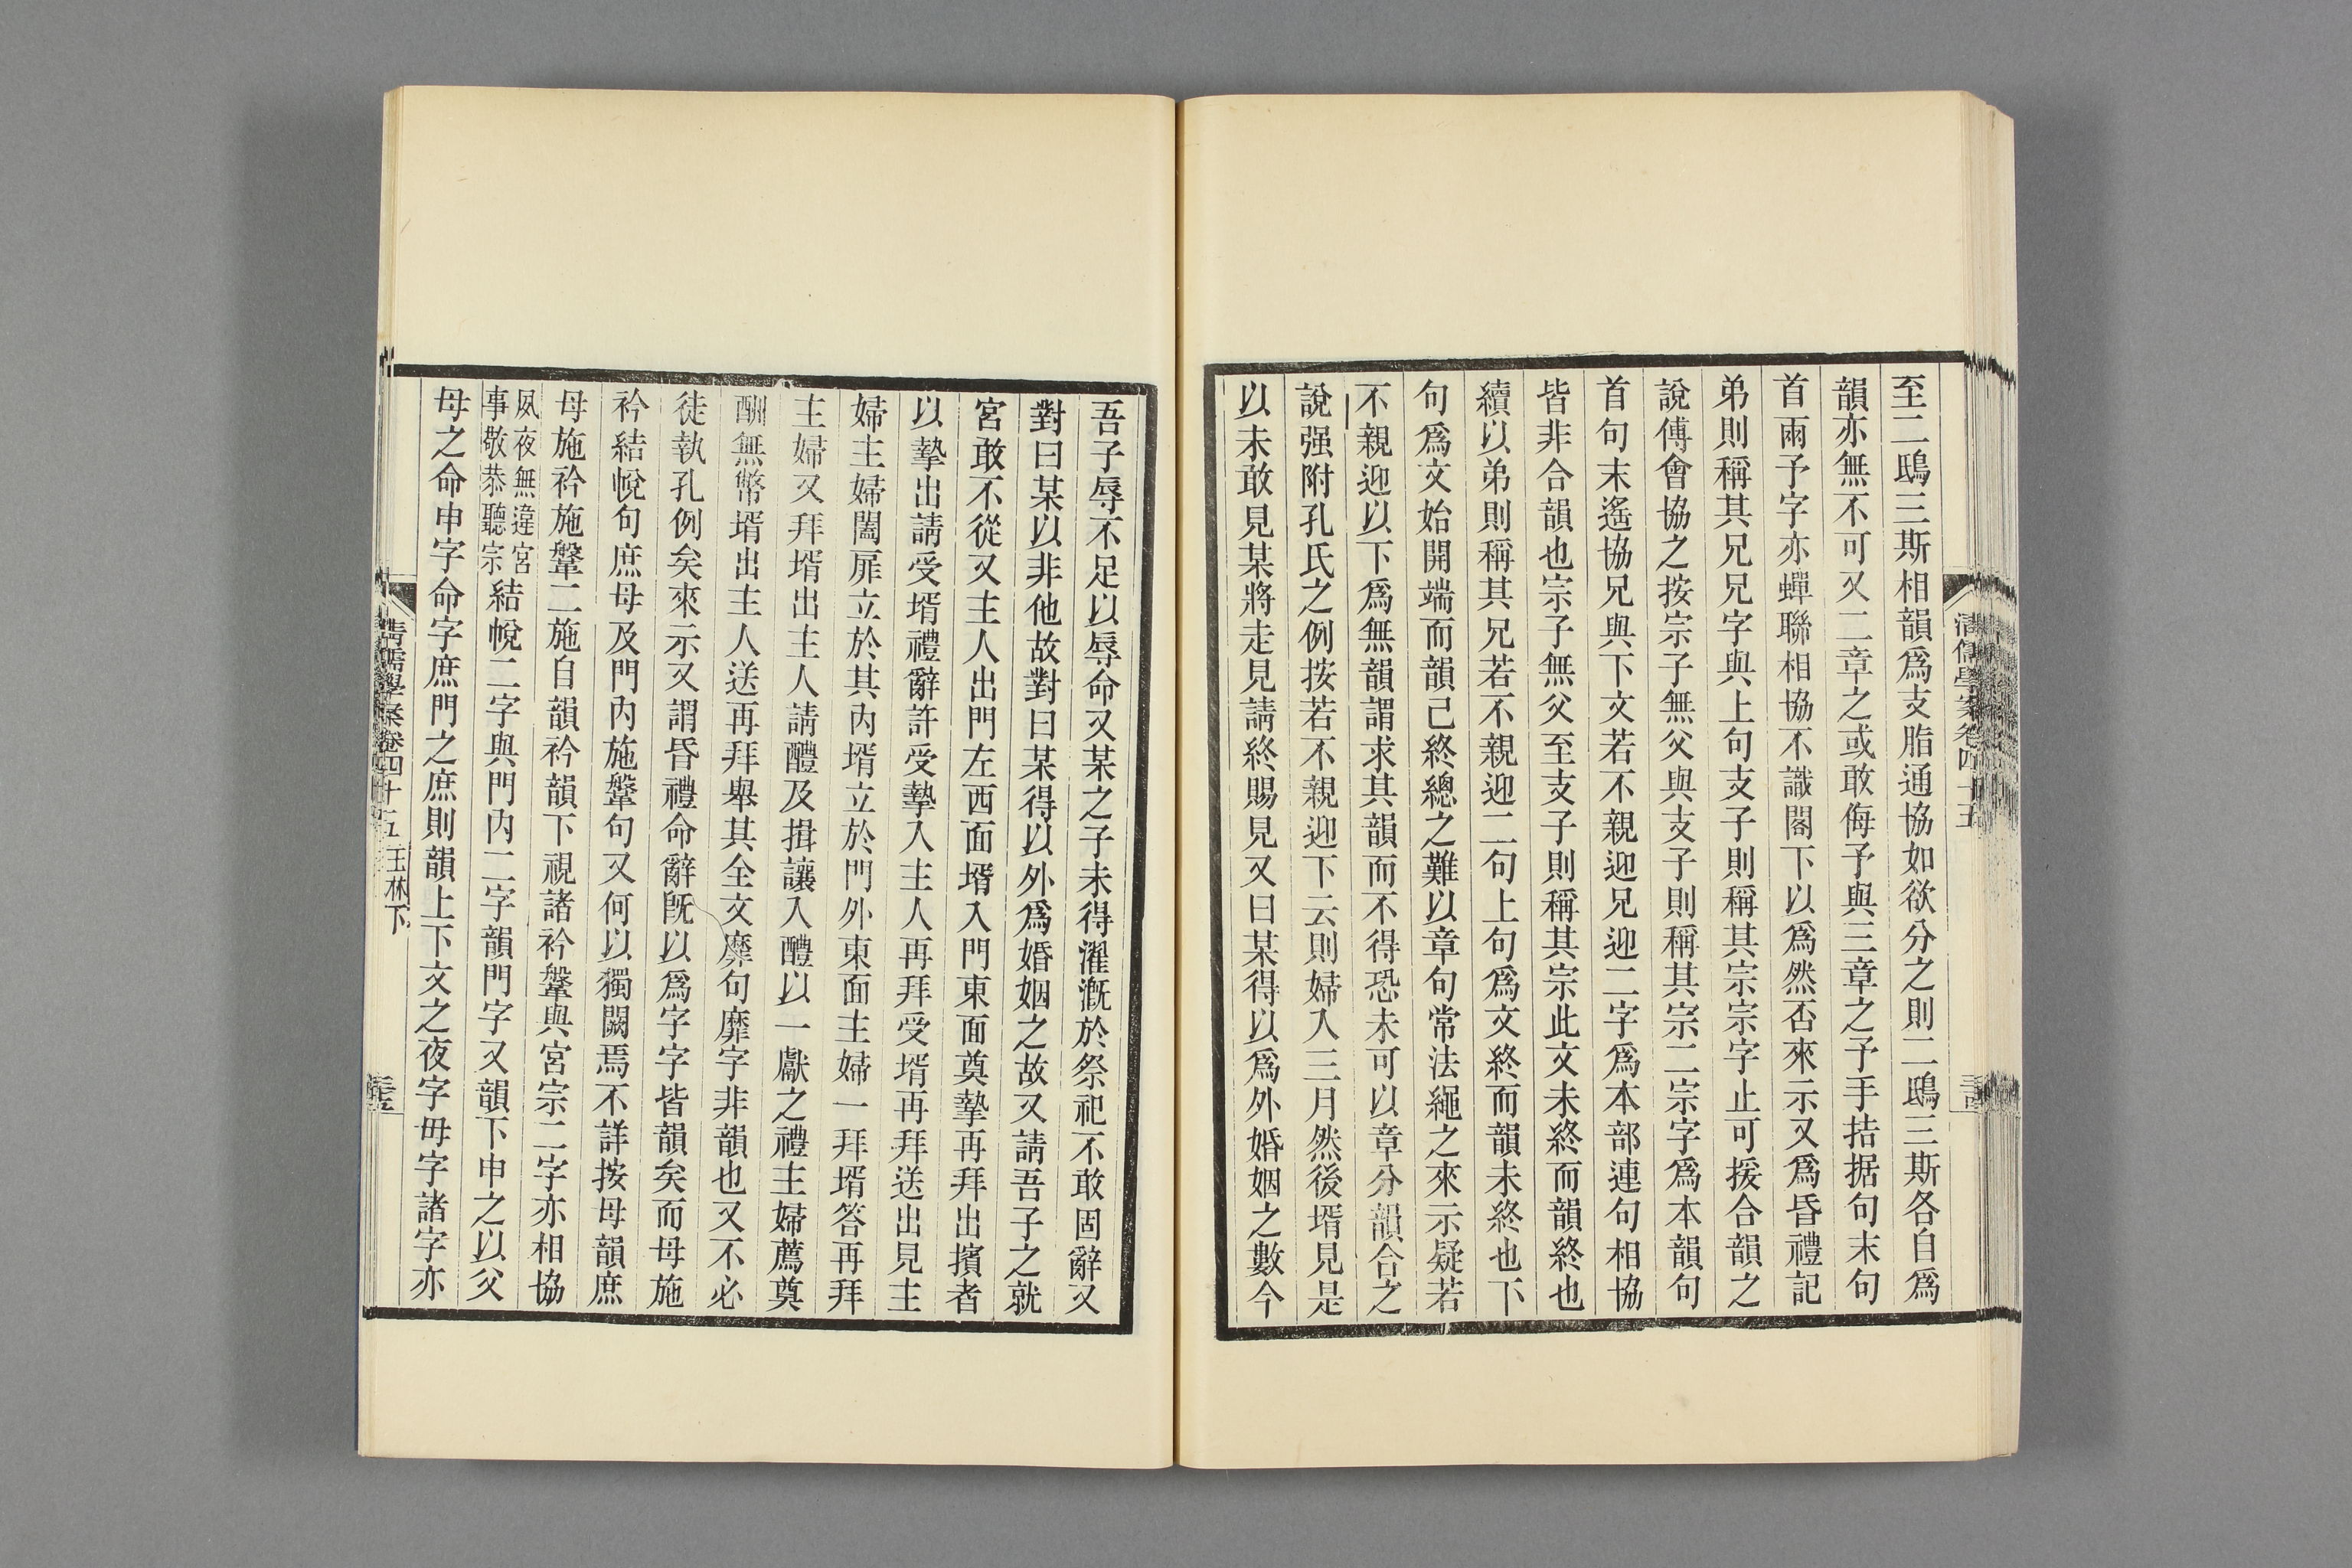 至二鴟三斯相韻爲支脂通協如欲分之則二鴟三斯各自爲
韻亦無不可又二章之或敢侮予與三章之予手拮据句末句
首兩予字亦蟬聯相協不識閣下以爲然否來示又爲昏禮記
弟則稱其兄兄字與上句支子則稱其宗宗字止可援合韻之
說傅會協之按宗子無父與支子則稱其宗二宗字爲本韻句
首句末遙協兄與下文若不親迎兄迎二字爲本部連句相協
皆非合韻也宗子無父至支子則稱其宗此文未終而韻終也
續以弟則稱其兄若不親迎二句上句爲文終而韻未終也下
句爲文始開端而韻已終總之難以章句常法繩之來示疑若
不親迎以下爲無韻謂求其韻而不得恐未可以章分韻合之
說强附孔氏之例按若不親迎下云則婦入三月然後壻見是
以未敢見某將走見請終賜見又曰某得以爲外婚姻之數今
吾子辱不足以辱命又某之子未得濯漑於祭祀不敢固辭又
對曰某以非他故對曰某得以外爲婚姻之故又請吾子之就
宮敢不從又主人出門左西面壻入門東面奠摯再拜出擯者
以摯出請受壻禮辭許受摯入主人再拜受壻再拜送出見主
婦主婦闔扉立於其內壻立於門外東面主婦一拜壻答再拜
主婦又拜壻出主人請醴及揖讓入醴以一獻之禮主婦薦奠
酬無幣壻出主人送再拜舉其全文靡句靡字非韻也又不必
徒執孔例矣來示又謂昏禮命辭旣以爲字字皆韻矣而母施
衿結帨句庶母及門內施鞶句又何以獨闕焉不詳按母韻庶
母施衿施鞶二施自韻衿韻下視諸衿鞶與宮宗二字亦相協
夙夜無違宮
事敬恭聽宗
結帨二字與門內二字韻門字又韻下申之以父
母之命申字命字庶門之庶則韻上下文之夜字毋字諸字亦
清儒學案卷四十五
清儒學案卷四十五 玉林下